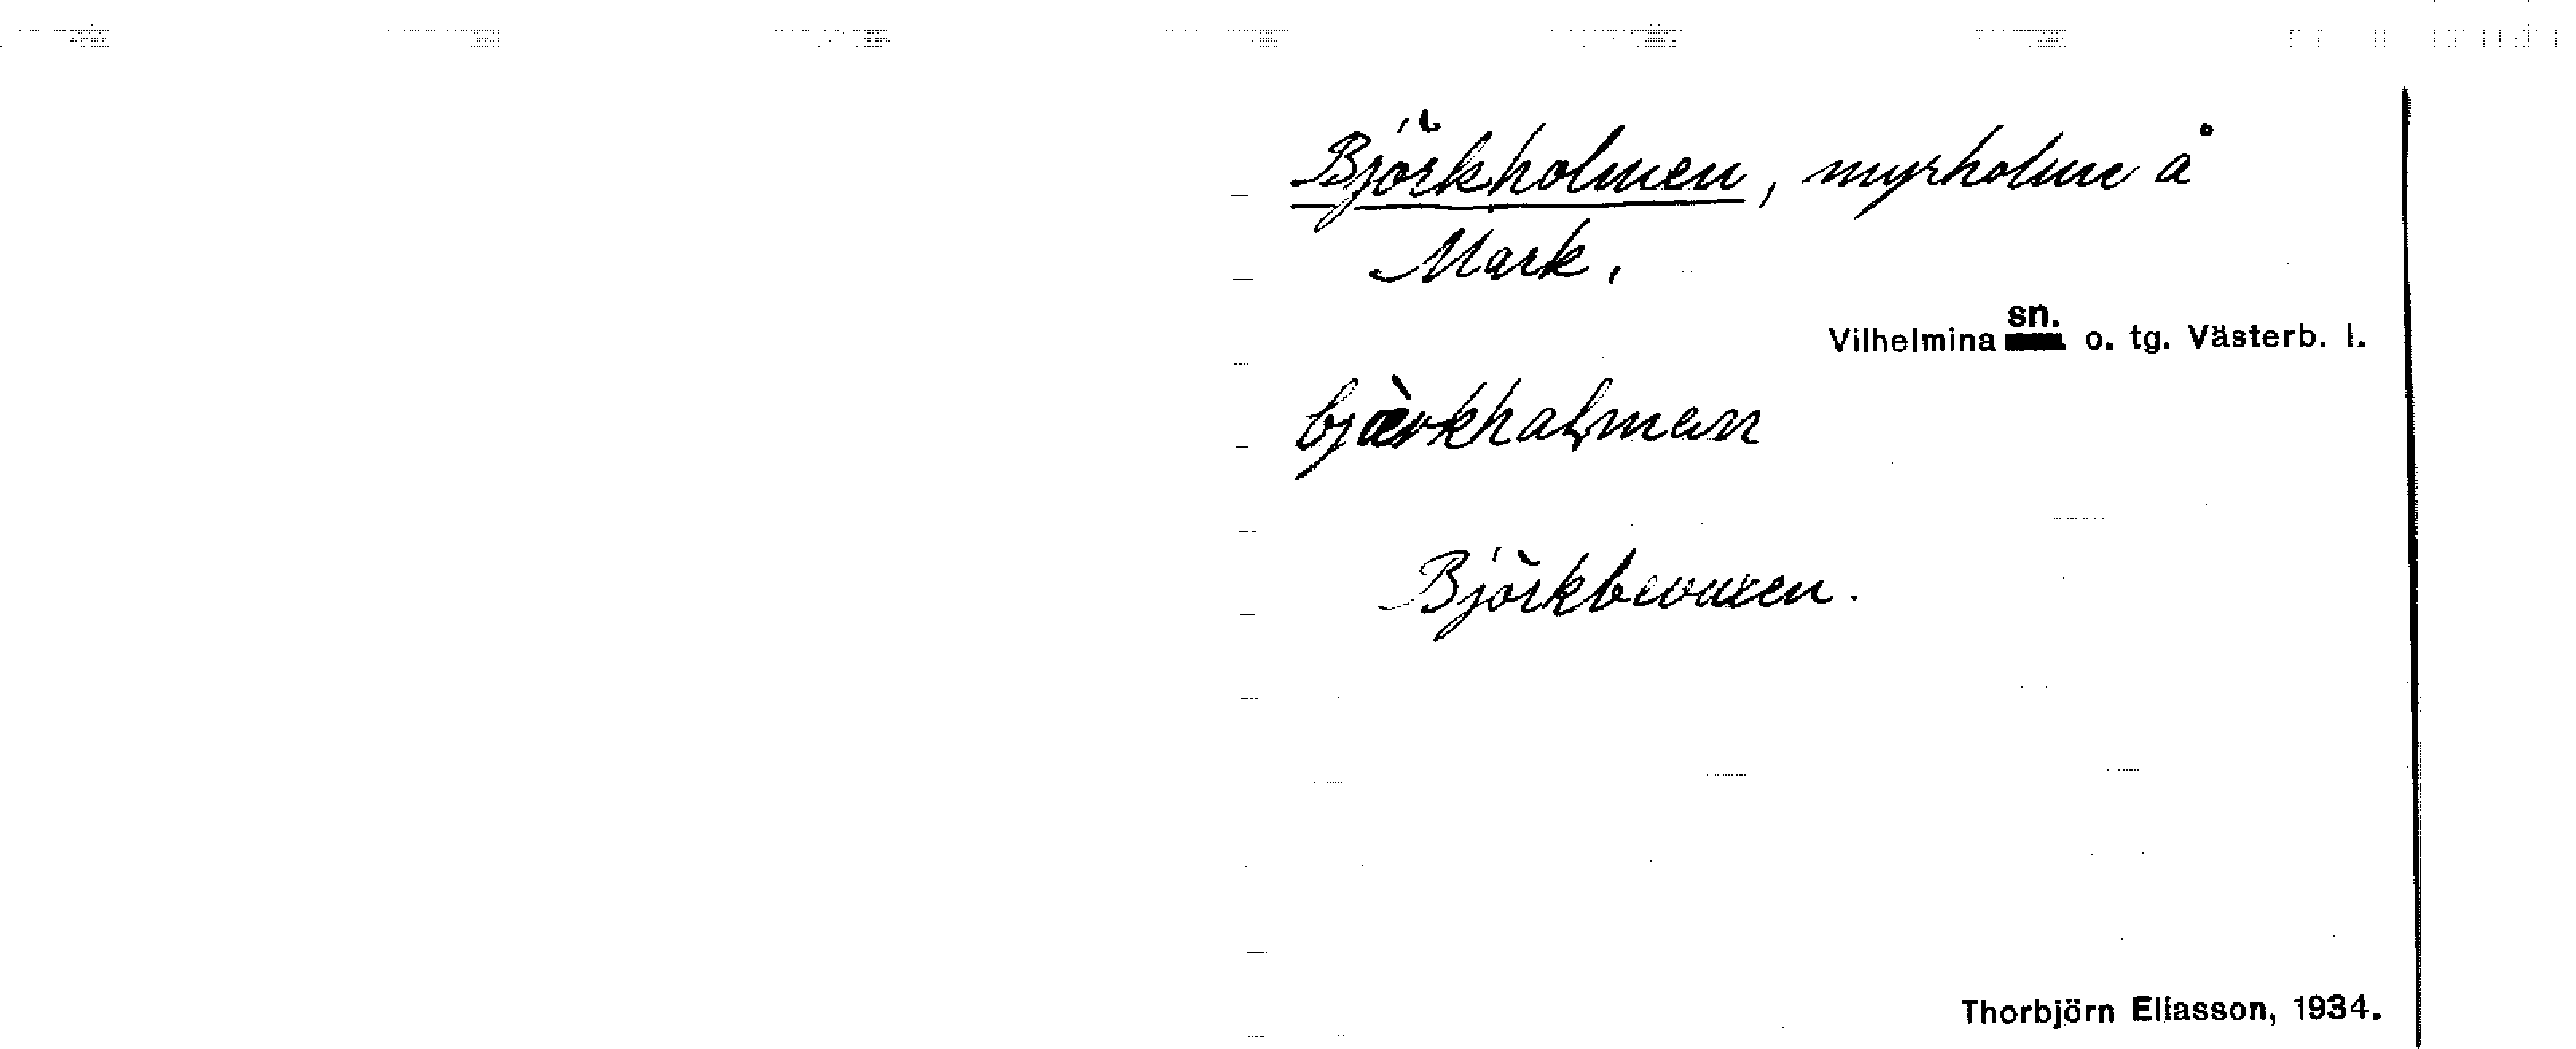 Björkholmen, myrholme å
Mark.
Vilhelmina sn. o. tg. Västerb. l.
bjæ̀rkhaɬman
Björkbevuxen.
Thorbjörn Eliasson, 1934.